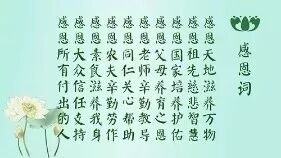 感恩词
感恩天地滋养万物
感恩祖先慈悲智慧
感恩国家培养护佑
感恩父母养育之恩
感恩老师辛勤教导
感恩同仁关心帮助
感恩农夫辛勤劳作
感恩素食滋养我身
感恩大众信任支持
感恩所有付出的人